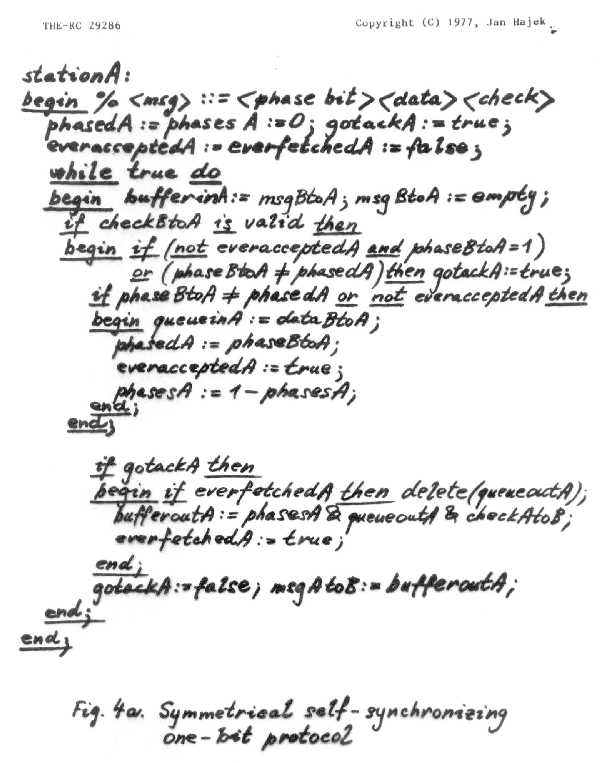 THE-RC 29286
Copyright (C) 1977, Jan Hajek
stationA:
begin % <msg> ::= <phase bit><data><check>
phasedA := phases A := 0; gotackA := true;
everacceptedA := everfetchedA := false;
while true do
begin bufferinA := msgBtoA; msgBtoA := empty;
if checkBtoA is valid then
begin if (not everacceptedA and phaseBtoA=1)
or (phaseBtoA ≠ phasedA) then gotackA:=true;
if phaseBtoA ≠ phasedA or not everacceptedA then
begin queueinA := dataBtoA;
phasedA := phaseBtoA;
everacceptedA := true;
phasesA := 1 - phasesA;
end;
end;
if gotackA then
begin if everfetchedA then delete(queueoutA);
bufferoutA := phasesA & queueoutA & checkAtoB;
everfetchedA := true;
end;
gotackA := false; msgAtoB := bufferoutA;
end;
end;
Fig. 4a. Symmetrical self-synchronizing
one-bit protocol